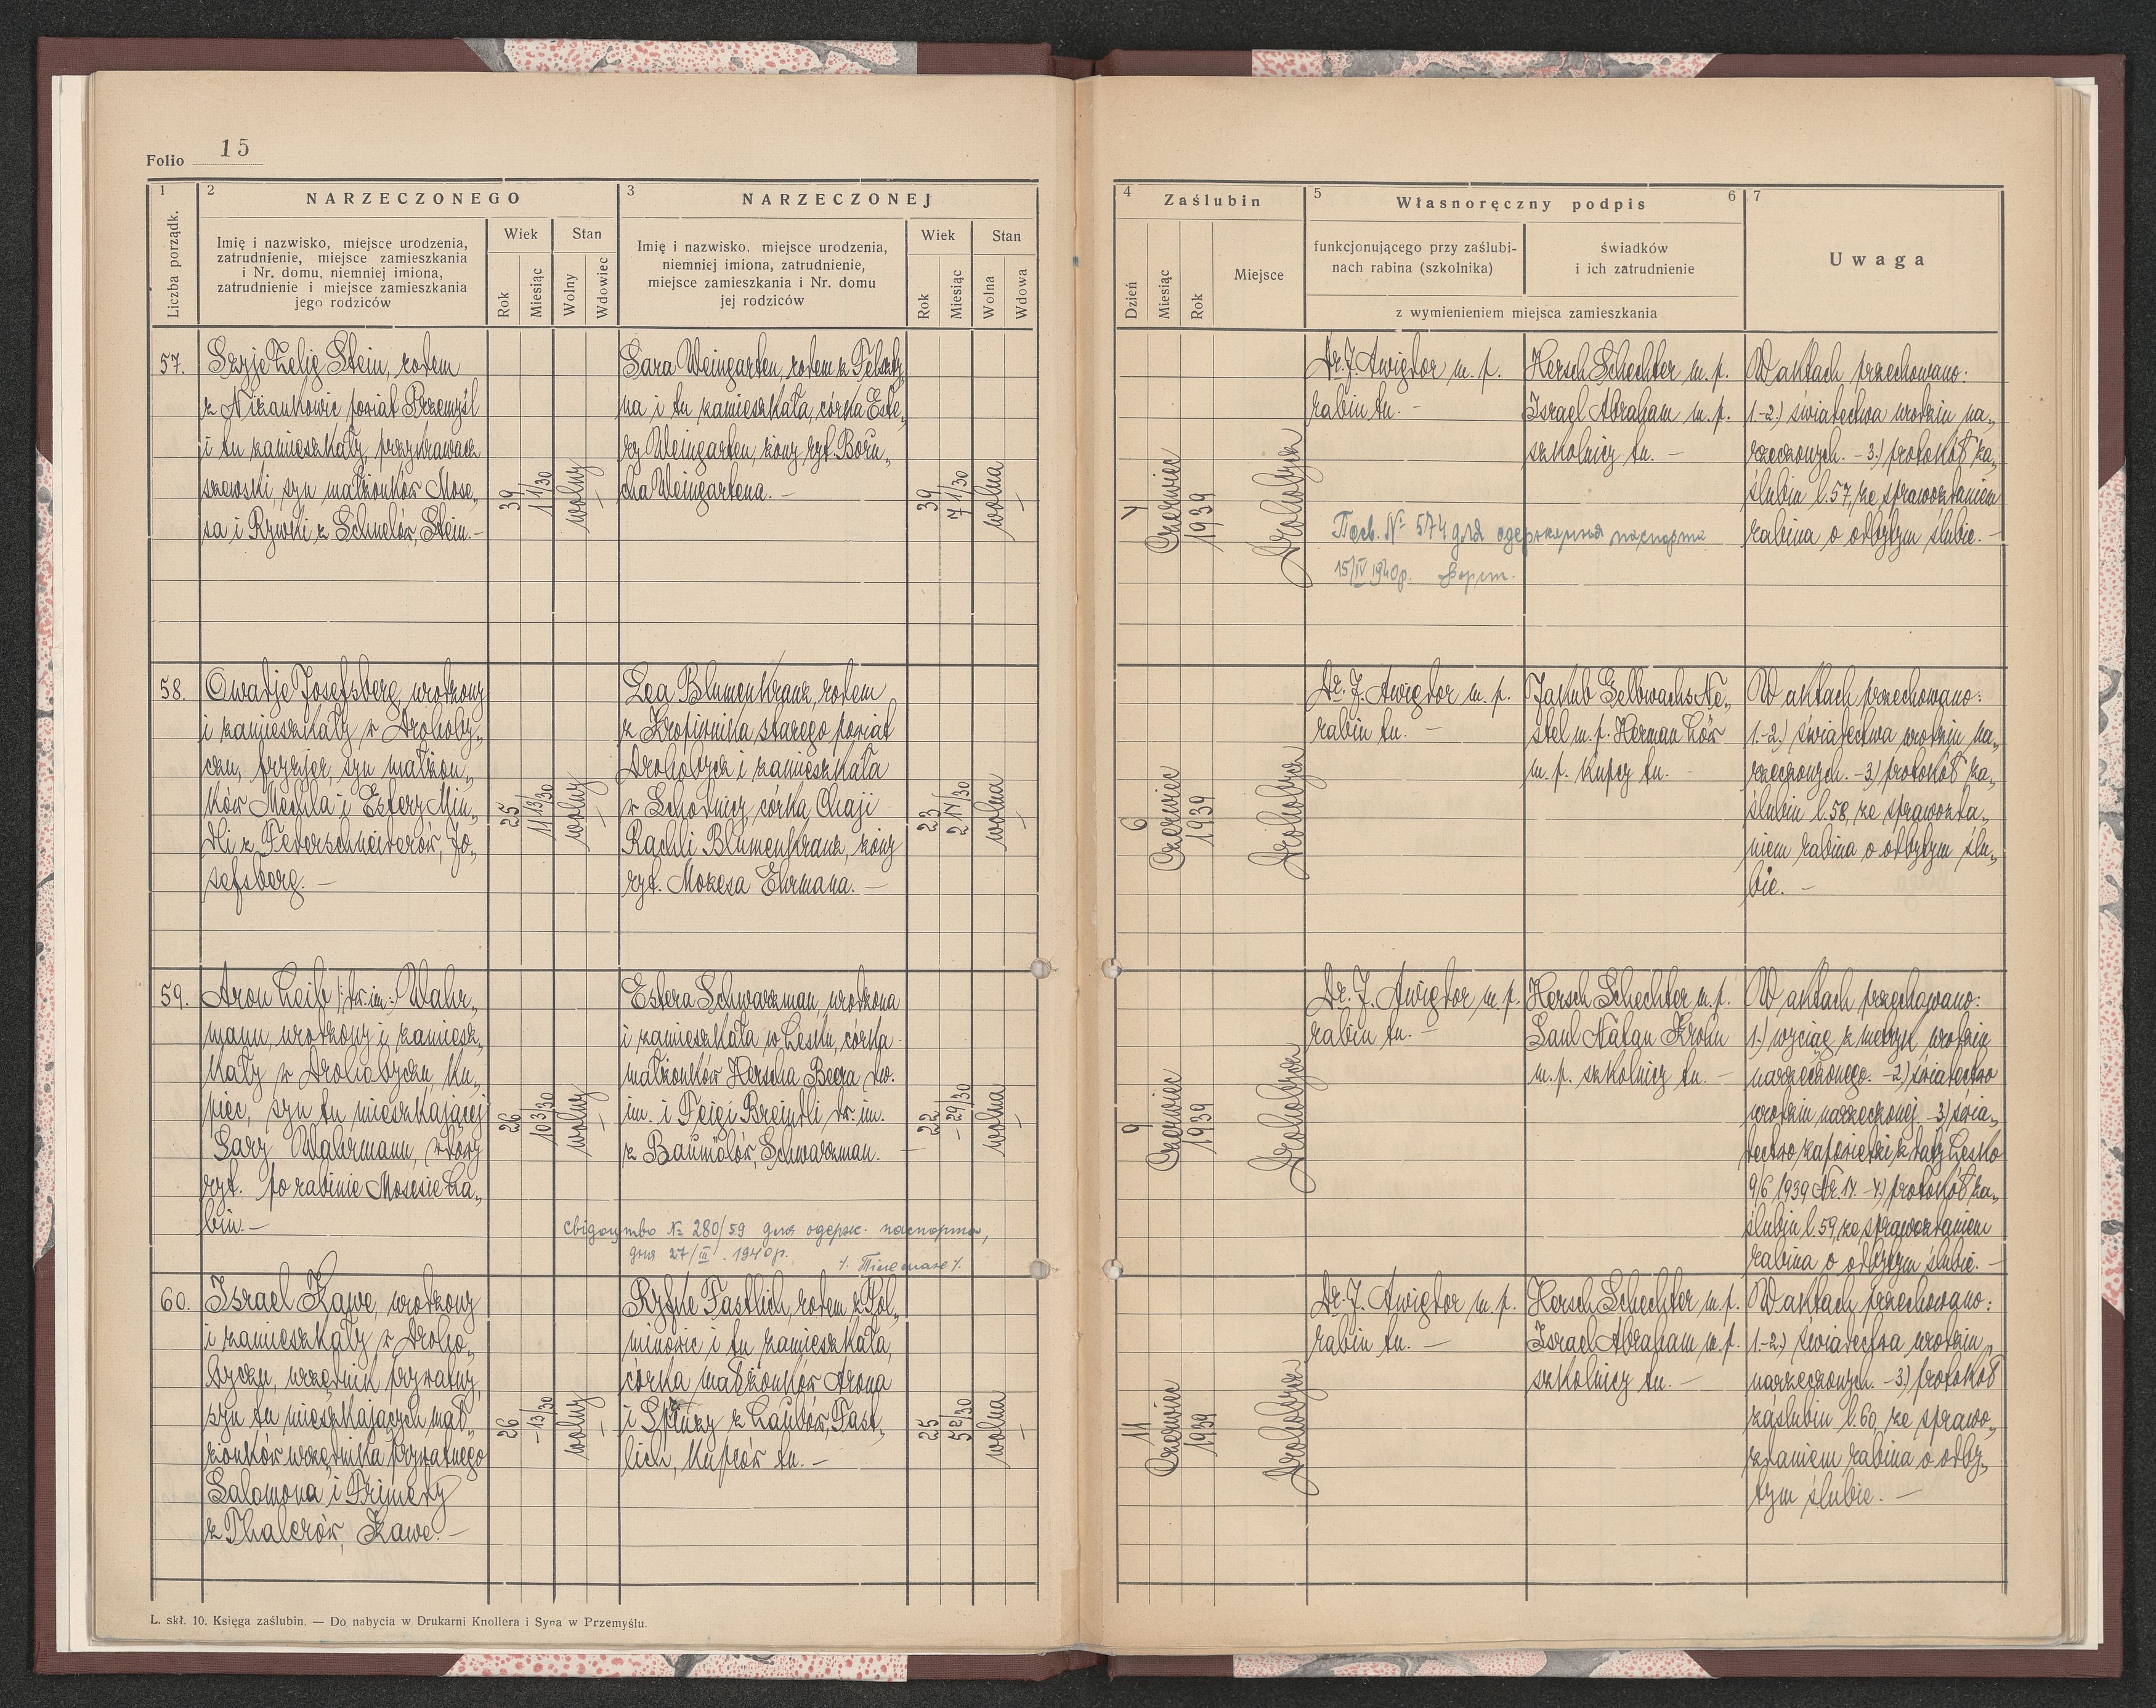 Folio 15
1
2
NARZECZONEGO
3
NARZECZONEJ
Liczba porządk.
Imię i nazwisko, miejsce urodzenia,
zatrudnienie, miejsce zamieszkania
i Nr. domu, niemniej imiona,
zatrudnienie i miejsce zamieszkania
jego rodziców
Wiek
Rok
Miesiąc
Stan
Wolny
Wdowiec
Imię i nazwisko. miejsce urodzenia,
niemniej imiona, zatrudnienie,
miejsce zamieszkania i Nr. domu
jej rodziców
Wiek
Rok
Miesiąc
Stan
Wolna
Wdowa
4
Zaślubin
5
Własnoręczny podpis
6
7
Dzień
Miesiąc
Rok
Miejsce
funkcjonującego przy zaślubi-
nach rabina (szkolnika)
świadków
i ich zatrudnienie
z wymienieniem miejsca zamieszkania
Uwaga
57.
Szyje Zelig Stein, rodem
z Niżankowic powiat Przemyśl
i tu zamieszkały, przykrawacz
szewski, syn małżonków Mose„
sa i Rywki z Schmelów, Stein.—
39
11 1/30
wolny
—
Sara Weingarten, rodem z
na i tu zamieszkała, córka Este„
ry Weingarten, żony ryt. Boru„
cha Weingartena. —
39
7 1/30
wolna
—
4
Czerwiec
1939
Drohobycz
Dr. J. Awigdor m. p.
rabin tu. —
Hersch Schechter m. p.
Israel Abraham m. p.
szkolnicy tu. —
W aktach przechowano:
1.-2.) świadectwa urodzin na„
rzeczonych. — 3.) protokół za„
ślubin l. 57, ze sprawozdaniem
rabina o odbytym ślubie. —
Посв. № 574 для одержання паспорта
15/IV 1940р.
58.
Owadje Josefsberg, urodzony
i zamieszkały w Drohoby„
czu, fryzjer, syn małżon„
ków Mechla i Estery Min„
dli z Federschneiderów, Jo„
sefsberg. —
25
11 13/30
wolny
—
Lea Blumenkranz, rodem
z Kropiwnika starego powiat
Drohobycz i zamieszkała
w Schodnicy, córka Chaji
Rachli Blumenkranz, żony
ryt. Mozesa Ehrmana. —
23
2 17/30
wolna
—
6
Czerwiec
1939
Drohobycz
Dr. J. Awigdor m. p.
rabin tu. —
Jakub Gelbwachs Ne„
stel m. p. Herman Löw
m. p. kupcy tu. —
W aktach przechowano:
1.-2.) świadectwa urodzin na„
rzeczonych. — 3.) protokół za„
ślubin l. 58, ze sprawozda„
niem rabina o odbytym ślu„
bie. —
59.
Aron Leib /: dw. im.:/ Wahr„
mann, urodzony i zamiesz„
kały w Drohobyczu, ku„
piec, syn tu mieszkającej
Sary Wahrmann, wdowy
ryt. po rabinie Mosesie Ra„
bin. —
26
10 3/30
wolny
—
Estera Schwarzman, urodzona
i zamieszkała w Lesku, córka
małżonków Herscha Beera dw.
im. i Feigi Breindli, dw. im.
z Baumölów, Schwarzman. —
22
- 29/30
wolna
—
9
Czerwiec
1939
Drohobycz
Dr. J. Awigdor m. p.
rabin tu. —
Hersch Schechter m. p.
Saul Natan Krohn
m. p. szkolnicy tu. —
W aktach przechowano:
1.) wyciąg z metryk urodzin
narzeczonego. — 2.) świadectwo
urodzin narzeczonej. — 3.) świa„
dectwo zapowiedzi z daty Lesko
9/6 1939 Nr. 17. — 4.) protokół za„
ślubin l. 59, ze sprawozdaniem
rabina o odbytym ślubie. —
свідоцтво № 280/59 для одерж. паспорта,
дня 27/III. 1940р.
60.
Israel Kawe, urodzony
i zamieszkały w Droho„
byczu, urzędnik prywatny,
syn tu mieszkających mał„
żonków urzędnika prywatnego
Salomona i Frimety
z Thalerów, Kawe. —
26
- 13/30
wolny
—
Ryfke Fastlich, rodem z Pol„
minowic i tu zamieszkała,
córka małżonków Arona
i Sprinzy z Laubów, Fast„
lich, kupców tu. —
25
5 12/30
wolna
—
11
Czerwiec
1939
Drohobycz
Dr. J. Awigdor m. p.
rabin tu. —
Hersch Schechter m. p.
Israel Abraham m. p.
szkolnicy tu. —
W aktach przechowano:
1.-2.) świadectwa urodzin
narzeczonych. — 3.) protokół
zaślubin l. 60, ze sprawo„
zdaniem rabina o odby„
tym ślubie. —
L. skł. 10. Księga zaślubin. — Do nabycia w Drukarni Knollera i Syna w Przemyślu.